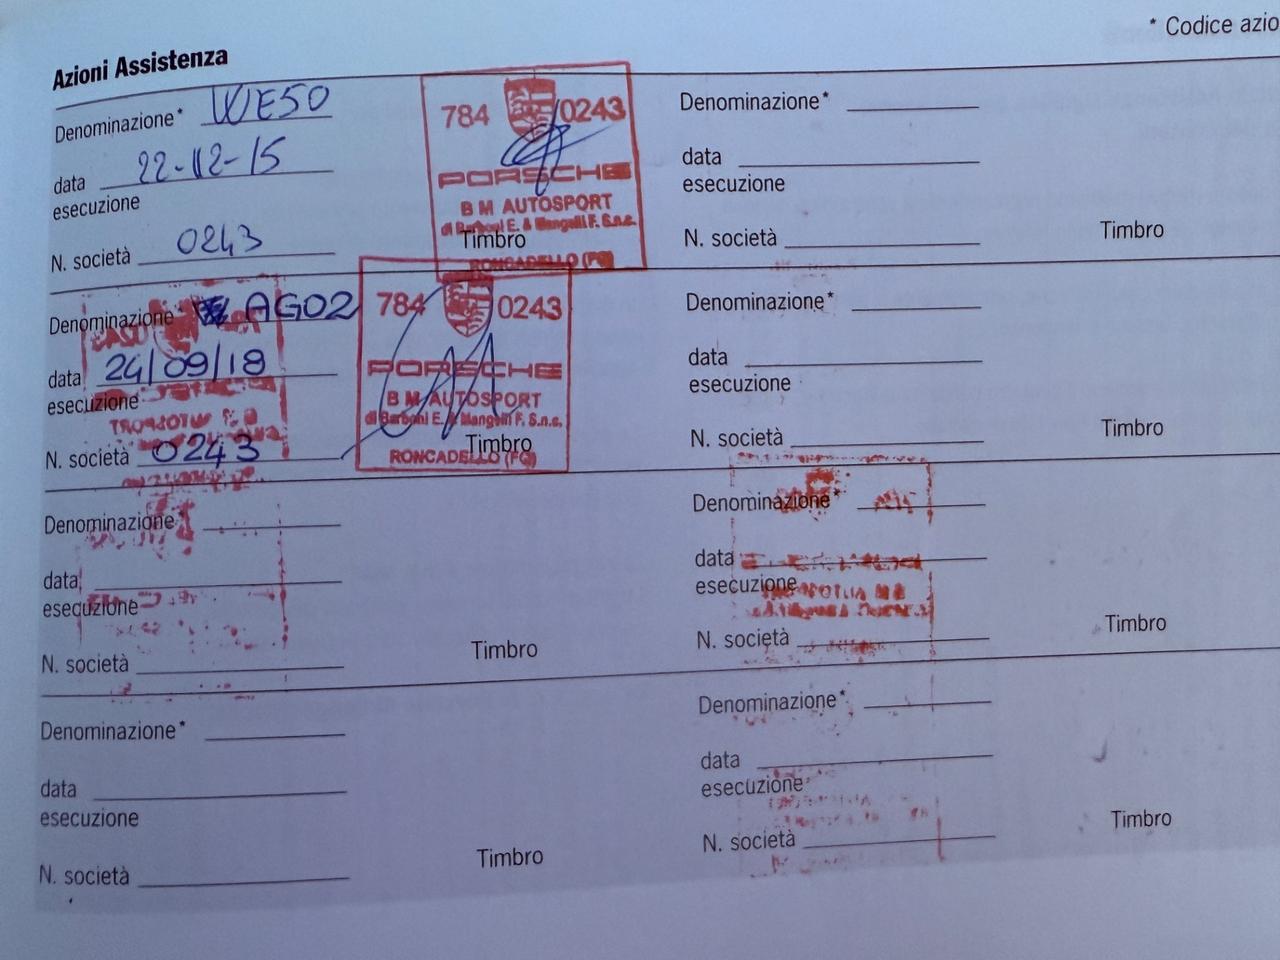 * Codice azio
Azioni Assistenza
Denominazione* WE50
data 22-12-15
esecuzione
N. società 0243
784 0243
PORSCHE
B M AUTOSPORT
di Barboni E. & Mangelli F. S.n.c.
Timbro
RONCADELLO (FO)
Denominazione*
data
esecuzione
N. società
Timbro
Denominazione* AG02
data 24/09/18
esecuzione
N. società 0243
784 0243
PORSCHE
B M AUTOSPORT
di Barboni E. & Mangelli F. S.n.c.
Timbro
RONCADELLO (FO)
Denominazione*
data
esecuzione
N. società
Timbro
Denominazione*
data
esecuzione
N. società
Timbro
Denominazione*
data
esecuzione
N. società
Timbro
Denominazione*
data
esecuzione
N. società
Timbro
Denominazione*
data
esecuzione
N. società
Timbro